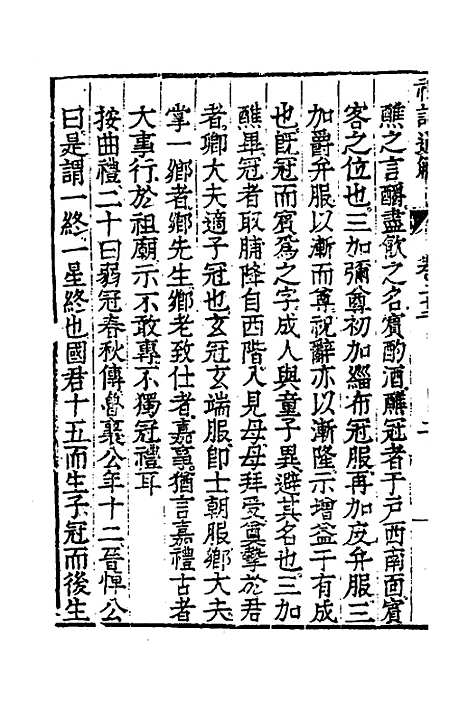 醮之言醮盡飲之名賓酌酒醮冠者于戸西南面賓
客之位也三加彌尊初加緇布冠服再加皮弁服三
加爵弁服以漸而尊祝辭亦以漸隆示增益于有成
也既冠而賓爲之字成人與童子異避其名也三加
醮畢冠者取脯降自西階入見母母拜受奠摯於君
者卿大夫適子冠也玄冠玄端服即士朝服鄉大夫
掌一鄉者鄉先生鄉老致仕者嘉事猶言嘉禮古者
大事行於祖廟示不敢專不獨冠禮耳
按曲禮二十曰弱冠春秋傳魯襄公年十二晉悼公
曰是謂一終一星終也國君十五而生子冠而後生